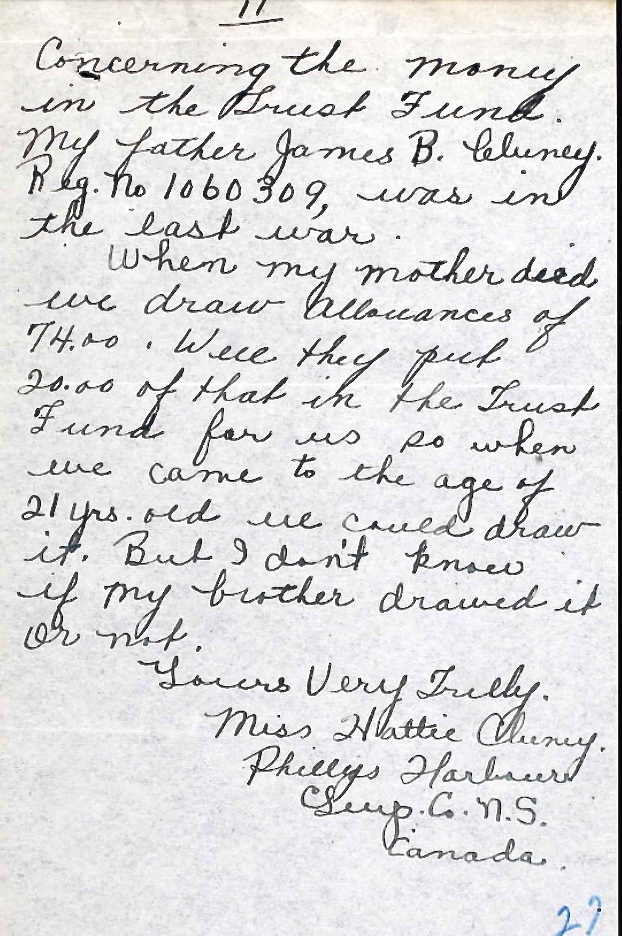 11
Concerning the money
in the Trust Fund.
My father James B. Cluney.
Reg. No 1060309, was in
the last war.
When my mother died
we draw allowances of
74.00. Well they put
20.00 of that in the Trust
Fund for us so when
we came to the age of
21 yrs. old we could draw
it. But I don't know
if my brother drawed it
or not.
Yours Very Trully.
Miss Hattie Cluney.
Phillys Harbour
Co. N.S.
Canada.
27